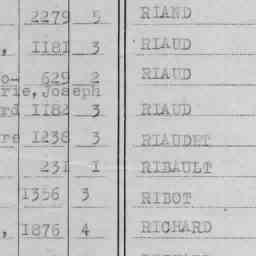 2279 5 RIAND
, 1181 3 RIAUD
o- 629 2 RIAUD
rie, Joseph
rd 1182 3 RIAUD
re 1238 3 RIAUDET
231 1 RIBAULT
1356 3 RIBOT
, 1876 4 RICHARD